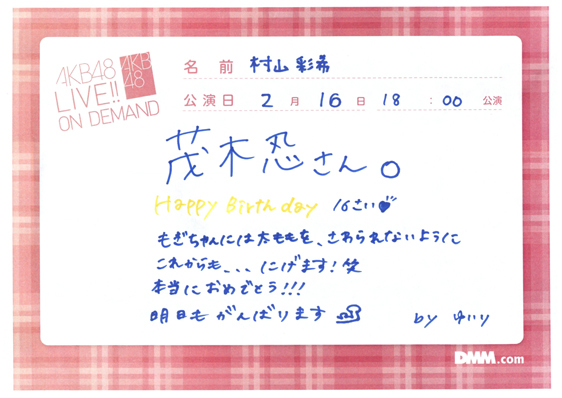 AKB48
LIVE!!
ON DEMAND
AKB
48
名 前 村山 彩希
公演日 2 月 16 日 18 : 00 公演
茂木忍さん。
Happy Birth day 16さい
もぎちゃんには太ももを、さわられないように
これからも、、、にげます！笑
本当におめでとう！！！
明日もがんばります
by ゆいり
DMM.com